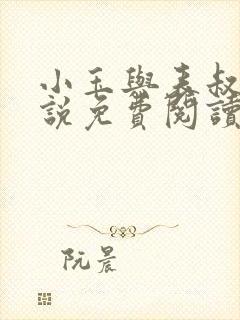 小玉與表叔
說免費閱讀
阮晨